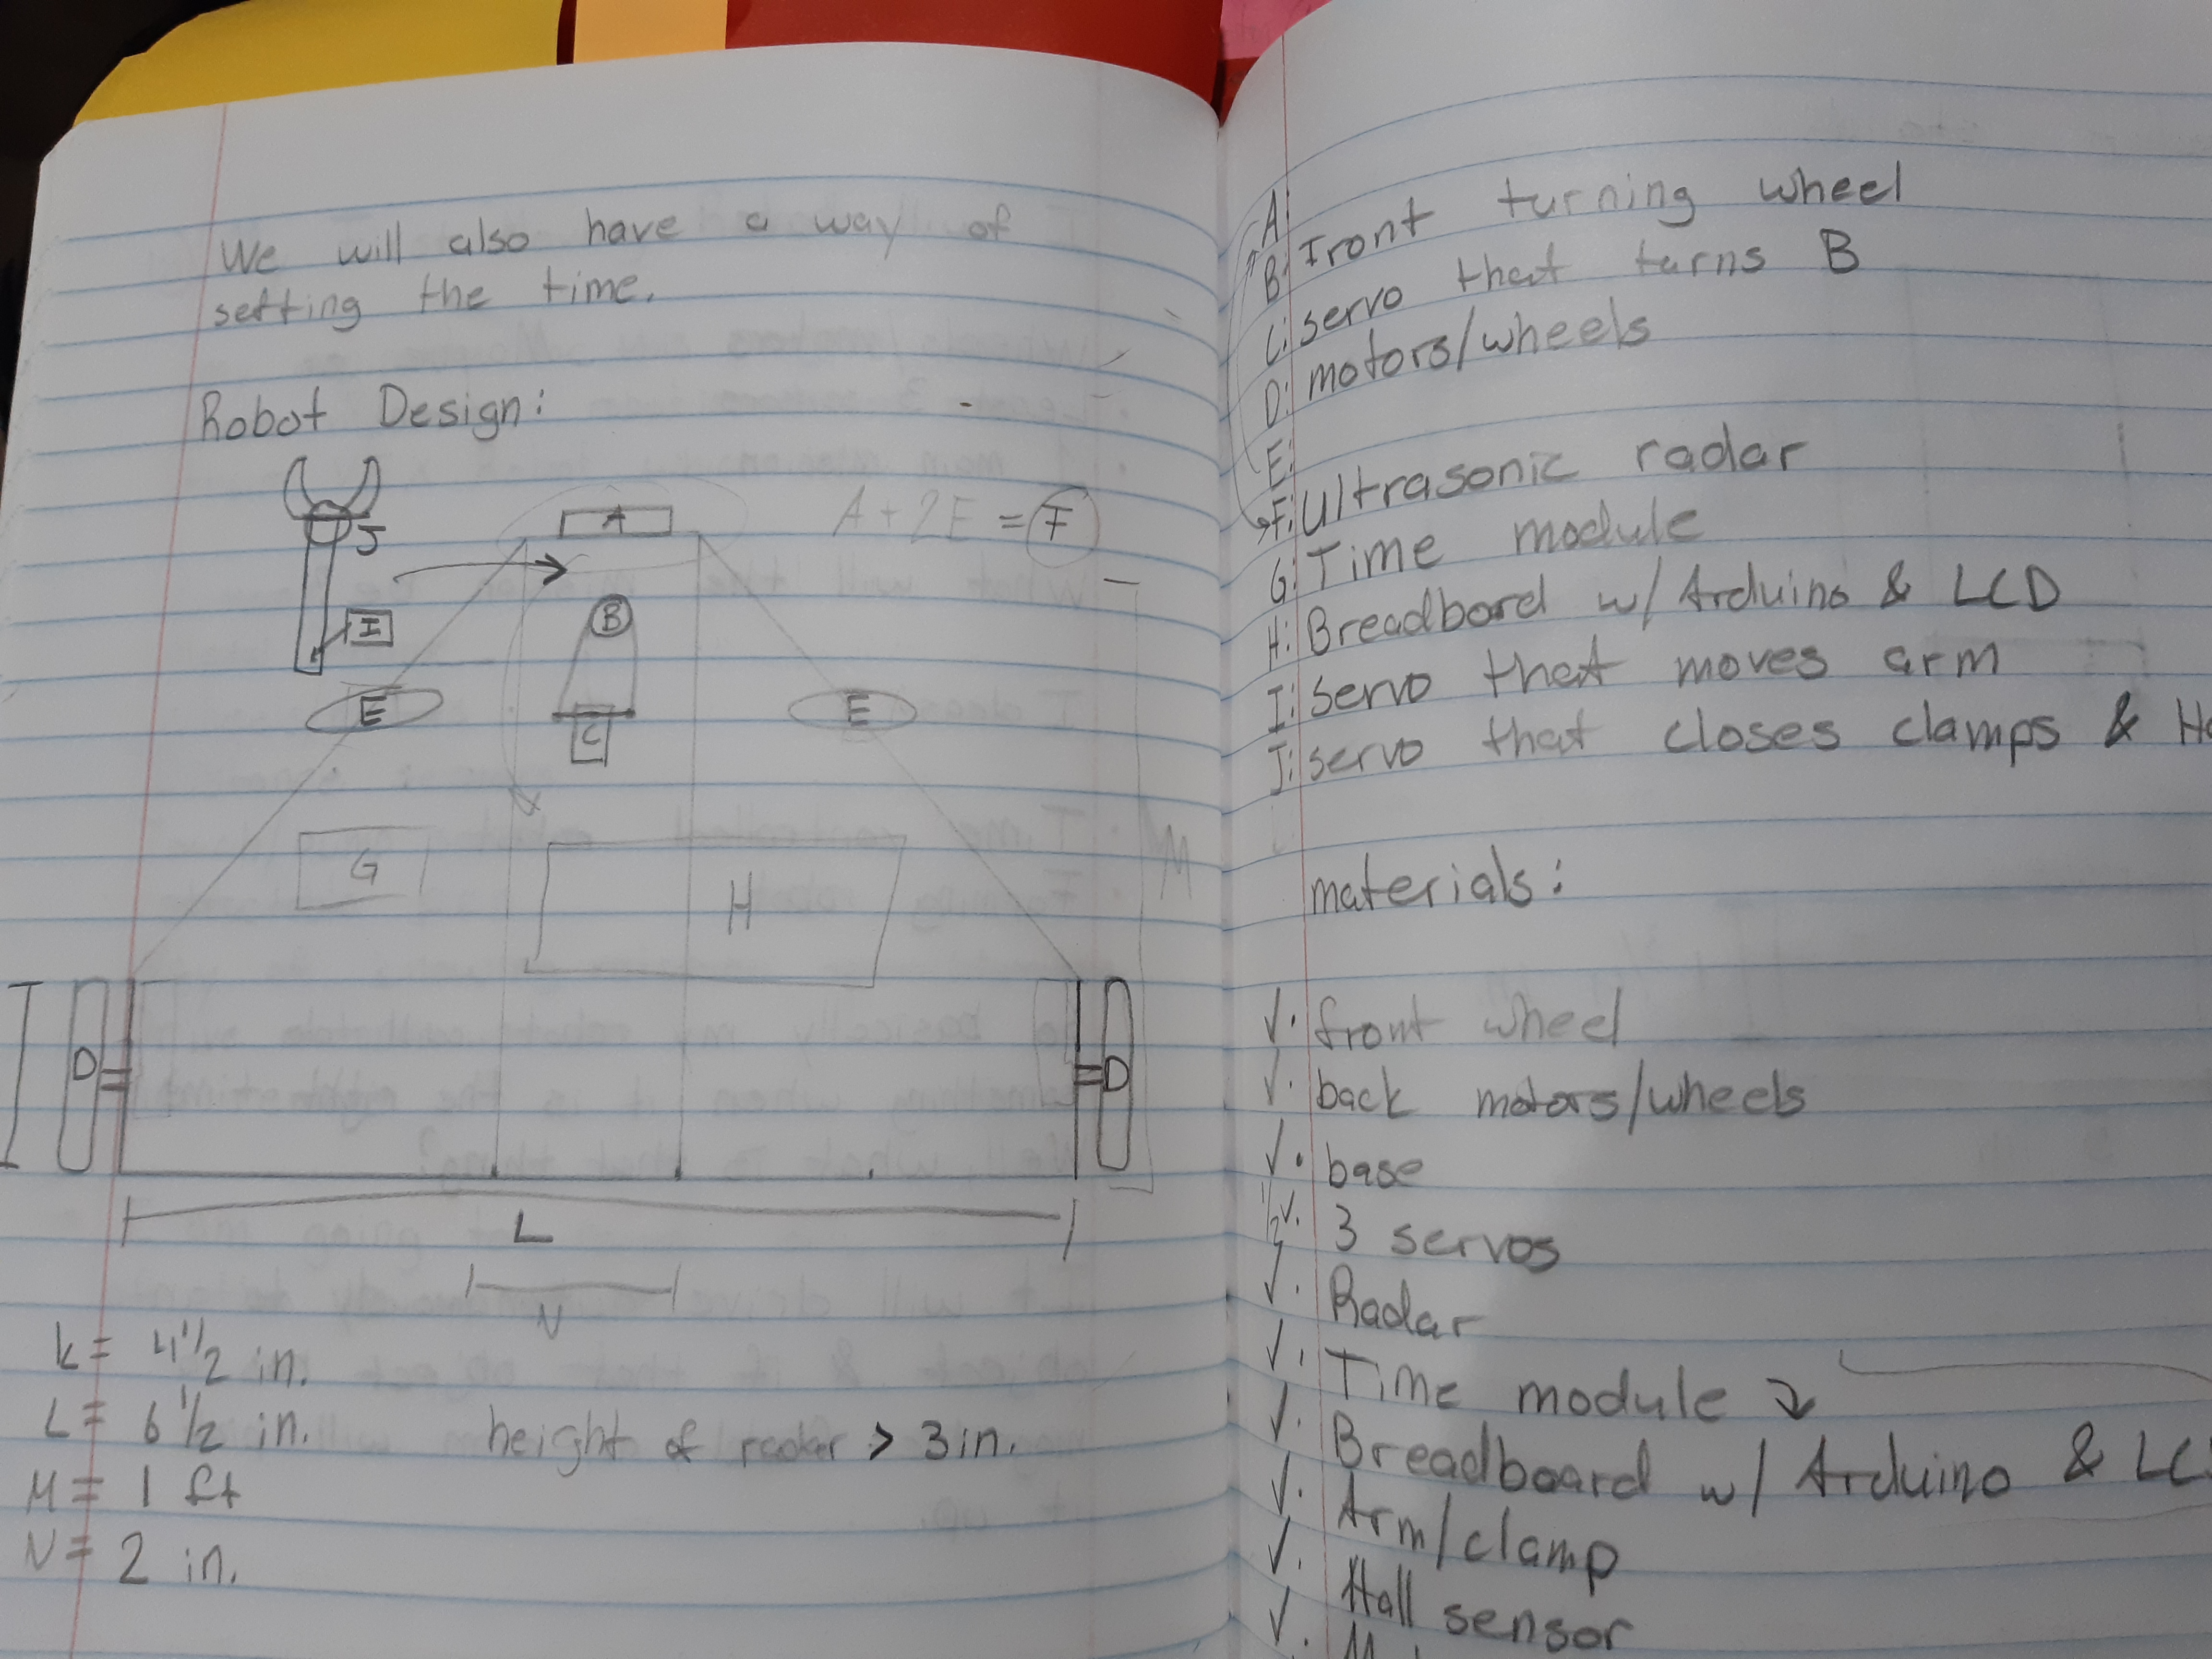 We will also have a way of
setting the time.
Robot Design:
J
I
A
A + 2E = F
B
C
E
E
G
H
M
D
D
L
N
K = 4 1/2 in.
L = 6 1/2 in.
height of radar > 3 in.
M = 1 ft
N = 2 in.
A:
B: Front turning wheel
C: servo that turns B
D: motors/wheels
E:
F: Ultrasonic radar
G: Time module
H: Breadbord w/ Arduino & LCD
I: servo that moves arm
J: servo that closes clamps &
materials:
✓. front wheel
✓. back motors/wheels
✓. base
1/2 ✓. 3 servos
✓. Radar
✓. Time module
✓. Breadboard w/ Arduino &
✓. Arm/clamp
✓. Hall sensor
✓.